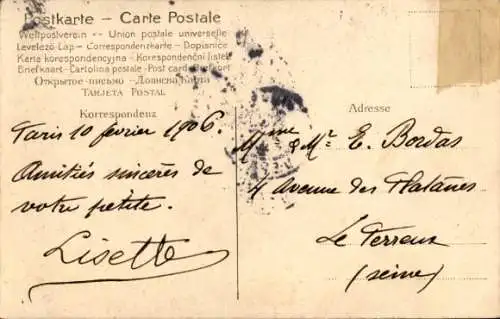 Postkarte – Carte Postale
Weltpostverein – Union postale universelle
Levelező-Lap – Correspondenzkarte – Dopisnice
Karta korespondencyjna – Korespondenční lístek
Briefkaart – Cartolina postale – Post card – Brefkort
Открытое письмо –
TARJETA POSTAL
Korrespondenz
Adresse
Paris 10 février 1906.
Amitiés sincères de
votre petite.
Lisette
Mme & Mr E. Bordas
4 Avenue des Platanes
Le Perreux
(Seine)